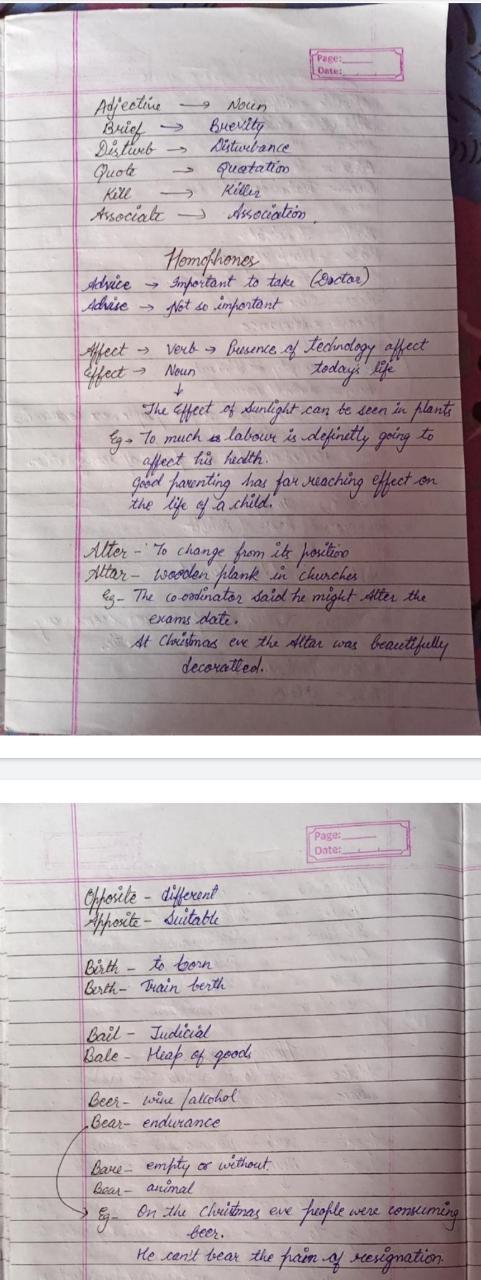 Page:
Date:
Adjective → Noun
Brief → Brevity
Disturb → Disturbance
Quote → Quotation
Kill → Killer
Associate → Association.
Homophones
Advice → Important to take (Doctor)
Advise → Not so important
Affect → Verb → Presence of technology affect
Effect → Noun today's life
↓
The Effect of sunlight can be seen in plants
Eg → To much labour is definetly going to
affect his health.
good parenting has far reaching effect on
the life of a child.
Alter - To change from its position
Altar - wooden plank in churches
Eg - The co-ordinator said he might Alter the
exams date.
At Christmas eve the Altar was beautifully
decoratted.
Page:
Date:
Opposite - different
Apposite - Suitable
Birth - to born
Berth - Train berth
Bail - Judicial
Bale - Heap of goods
Beer - wine / alcohol
Bear - endurance
Bare - empty or without.
Bear - animal
Eg - On the Christmas eve people were consuming
beer.
He can't bear the pain of resignation.